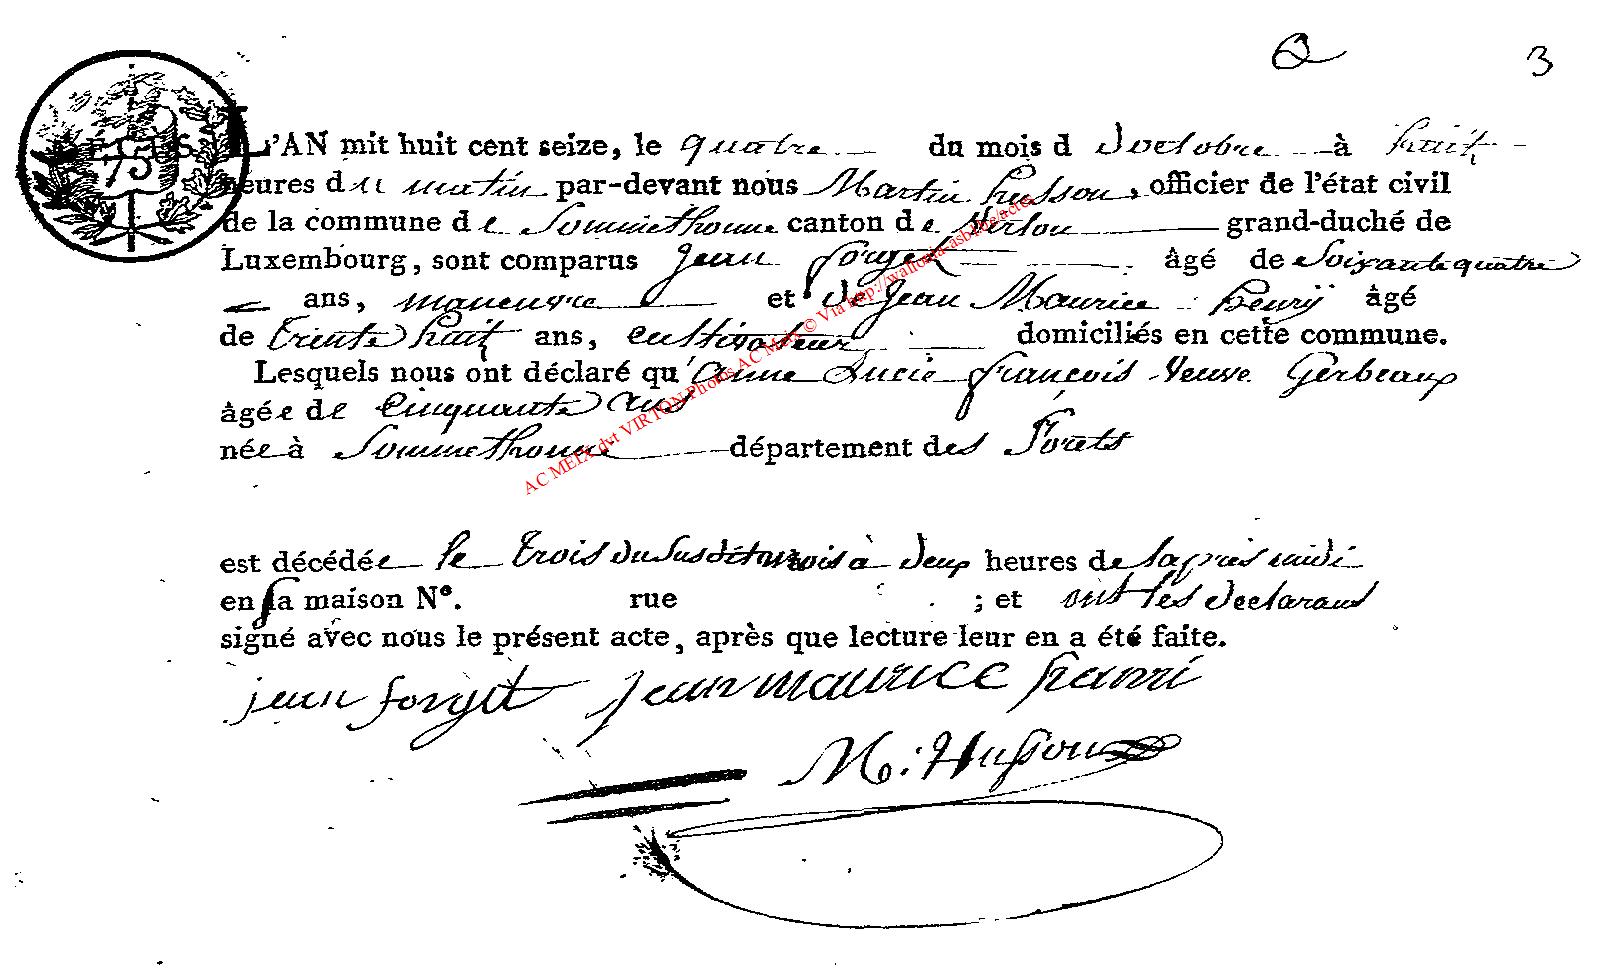 3
75
L'AN mil huit cent seize, le quatre du mois d doctobre à huit
heures du matin par-devant nous Martin husson, officier de l'état civil
de la commune de Sommethonne canton de Virton grand-duché de
Luxembourg, sont comparus Jean forget âgé de Soixante quatre
ans, maneuvre et de Jean Maurice henrÿ âgé
de trente huit ans, cultivateur domiciliés en cette commune.
Lesquels nous ont déclaré qu'anne Lucie françois Veuve Gerbeaux
âgée de Cinquante ans
née à Sommethonne département des Forêts
est décédée le trois du susdit mois à deux heures de laprès midi
en sa maison N°. rue ; et ont les declarans
signé avec nous le présent acte, après que lecture leur en a été faite.
jean forget jean maurice henri
M: Husson
AC MEIX dvt VIRTON Photos AC Meix © Via http://wallonia-asbl.be/actes